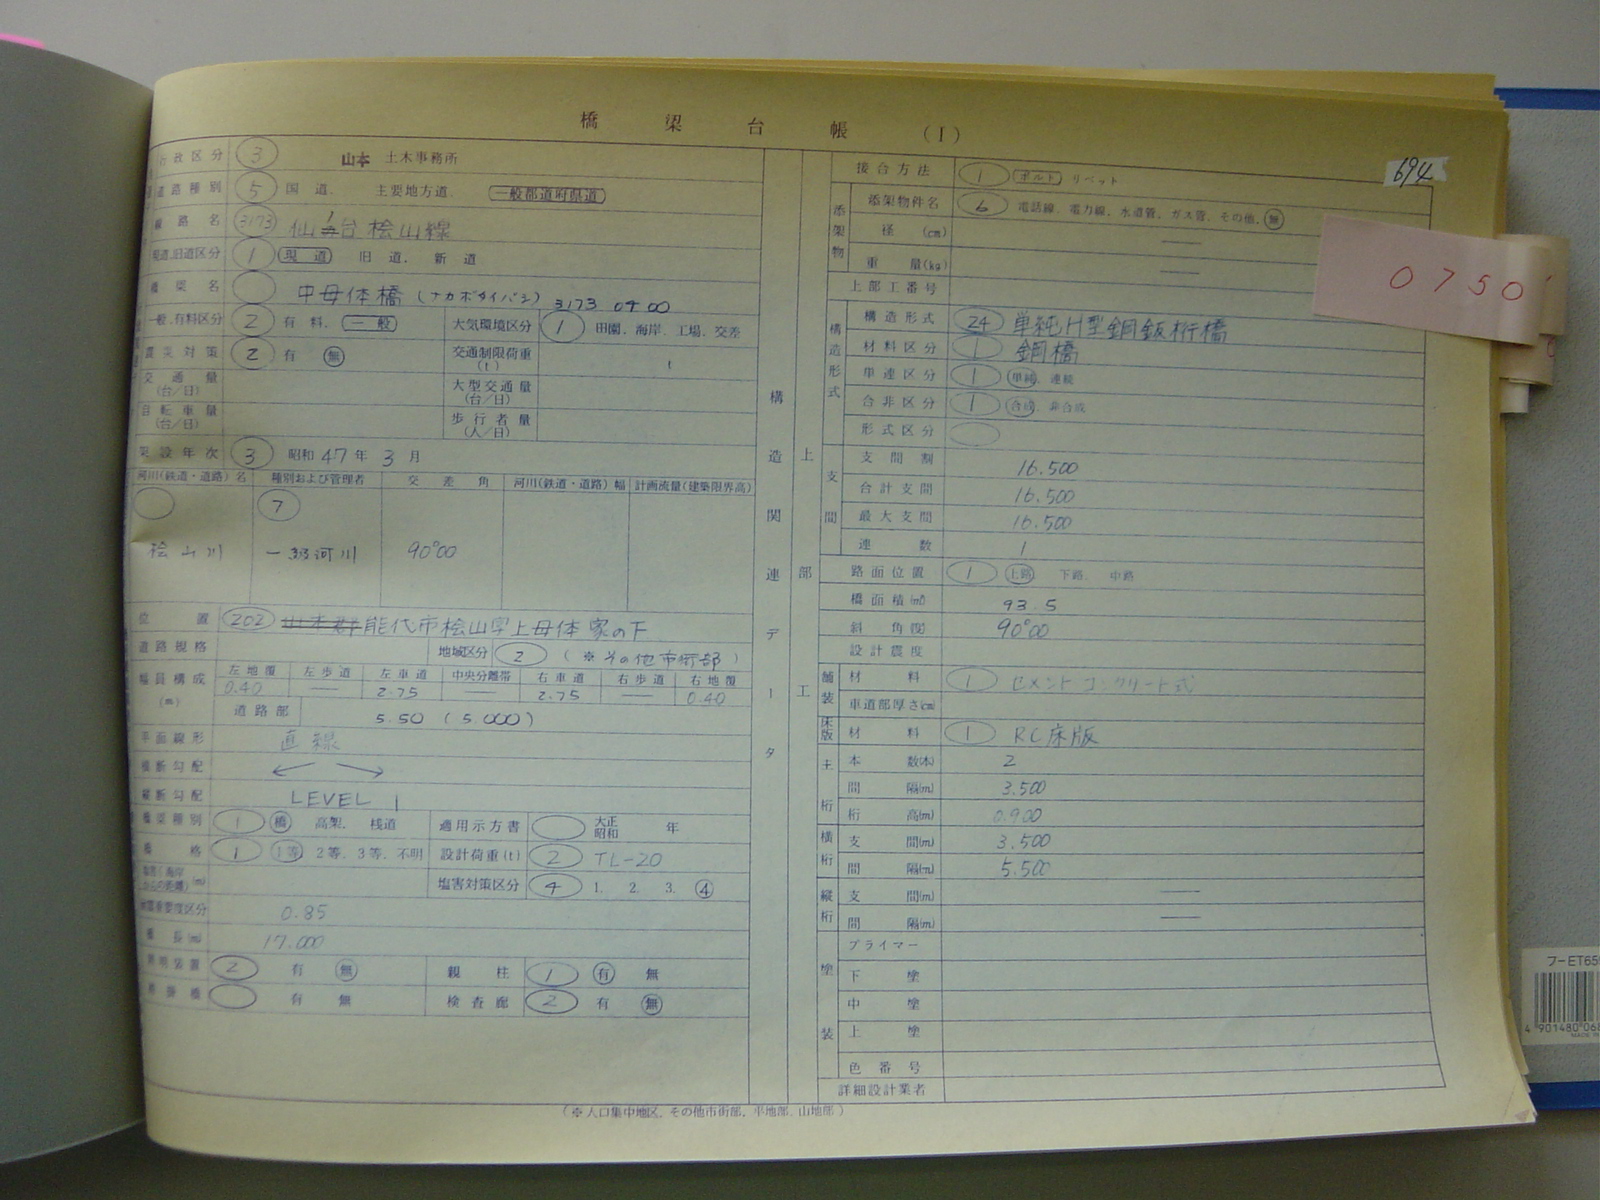 橋梁台帳 (I)
694
0750
行政区分 3 山本 土木事務所
道路種別 5 国道. 主要地方道. 一般都道府県道
路線名 3173 台桧山線
現道.旧道区分 1 現道 旧道. 新道
橋梁名 中母体橋 (ナカボタイバシ) 3173 0400
一般.有料区分 2 有料. 一般 大気環境区分 1 田園. 海岸. 工場. 交差
震災対策 2 有 無 交通制限荷重(t) t
交通量(台/日) 大型交通量(台/日)
自転車量(台/日) 歩行者量(人/日)
架設年次 3 昭和 47 年 3 月
河川(鉄道・道路)名 種別および管理者 交差角 河川(鉄道・道路)幅 計画流量(建築限界高)
7
桧山川 一級河川 90°00
位置 202 山本郡 能代市桧山字上母体家の下
道路規格 地域区分 2 (※その他市街部)
幅員構成(m) 左地覆 左歩道 左車道 中央分離帯 右車道 右歩道 右地覆
0.40 — 2.75 — 2.75 — 0.40
道路部 5.50 (5.000)
平面線形 直線
横断勾配
縦断勾配 LEVEL
橋梁種別 1 橋 高架. 桟道 適用示方書 大正 昭和 年
橋格 1 1等 2等. 3等. 不明 設計荷重(t) 2 TL-20
塩害対策区分 4 1. 2. 3. ④
重要度区分 0.85
橋長(m) 17.000
照明装置 2 有 無 親柱 1 有 無
添接橋 有 無 検査廊 2 有 無
構造関連データ
上部工
接合方法 1 ボルト リベット
添架物 添架物件名 6 電話線. 電力線. 水道管. ガス管. その他. 無
径 (cm) —
重量(kg) —
上部工番号
構造形式 構造形式 24 単純H型鋼鈑桁橋
材料区分 1 鋼橋
単連区分 1 単純. 連続
合非区分 1 合成. 非合成
形式区分
支間 支間割 16.500
合計支間 16.500
最大支間 16.500
連数 1
路面位置 1 上路 下路. 中路
橋面積(㎡) 93.5
斜角(度) 90°00
設計震度
舗装 材料 1 セメントコンクリート式
車道部厚さ(cm)
床版 材料 1 RC床版
主桁 本数(本) 2
間隔(m) 3.500
桁高(m) 0.900
横桁 支間(m) 3.500
間隔(m) 5.500
縦桁 支間(m) —
間隔(m) —
塗装 プライマー
下塗
中塗
上塗
色番号
詳細設計業者
(※人口集中地区. その他市街部. 平地部. 山地部)